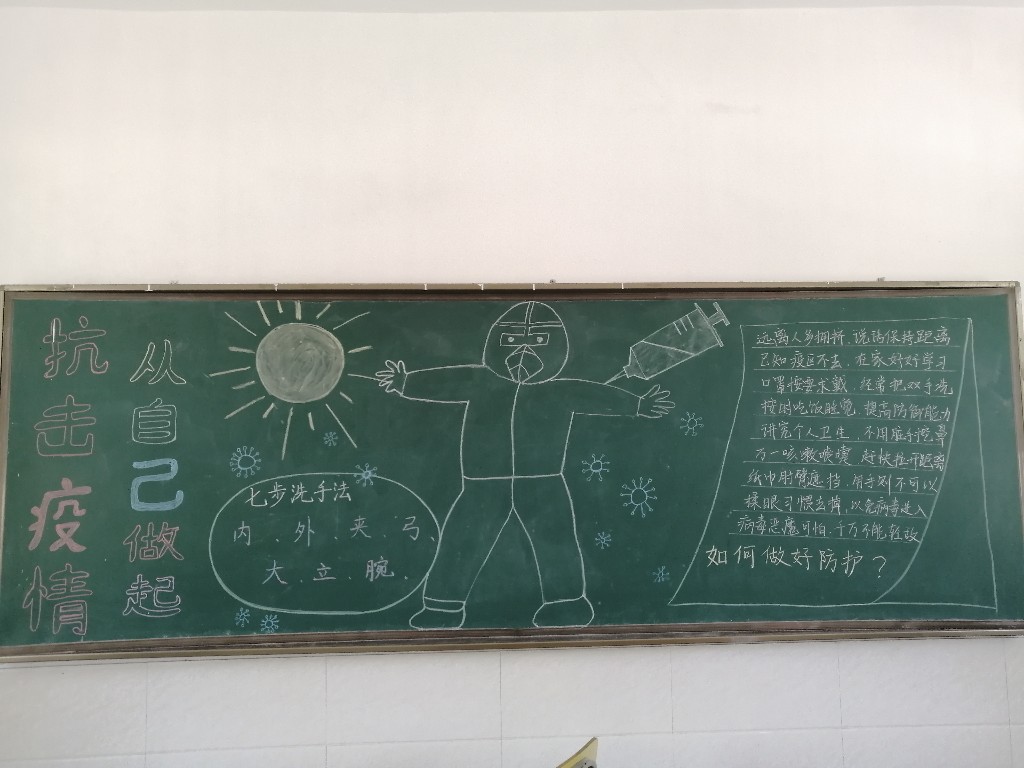 抗击疫情
从自己做起
七步洗手法
内、外、夹、弓、
大、立、腕、
远离人多拥挤,说话保持距离
已知疫区不去,在家好好学习
口罩按要求戴,经常把双手洗
按时吃饭睡觉,提高防御能力
讲究个人卫生,不用脏手
万一咳嗽喷嚏,赶快拉开距离
纸巾用臂遮挡,用手则不可以
揉眼习惯去掉,以免病毒进入
病毒恶魔可怕,千万不能轻敌
如何做好防护?